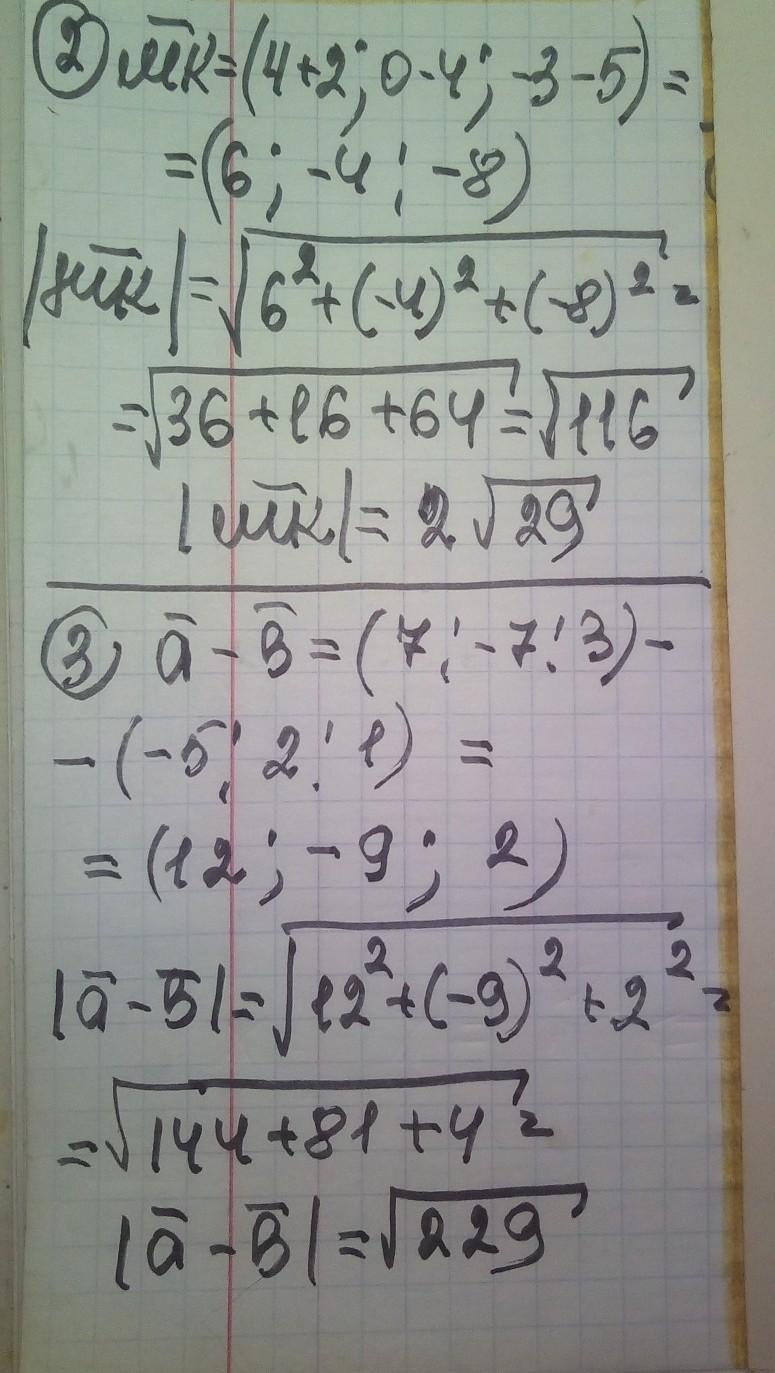 ② m̅k̅=(4+2; 0-4; -3-5)=
=(6; -4; -8)
|m̅k̅|=√6²+(-4)²+(-8)²=
=√36+16+64=√116
|m̅k̅|=2√29
③ a̅-b̅=(7; -7; 3)-
-(-5; 2; 1) =
=(12; -9; 2)
|a̅-b̅|=√12²+(-9)²+2²=
=√144+81+4=
|a̅-b̅|=√229